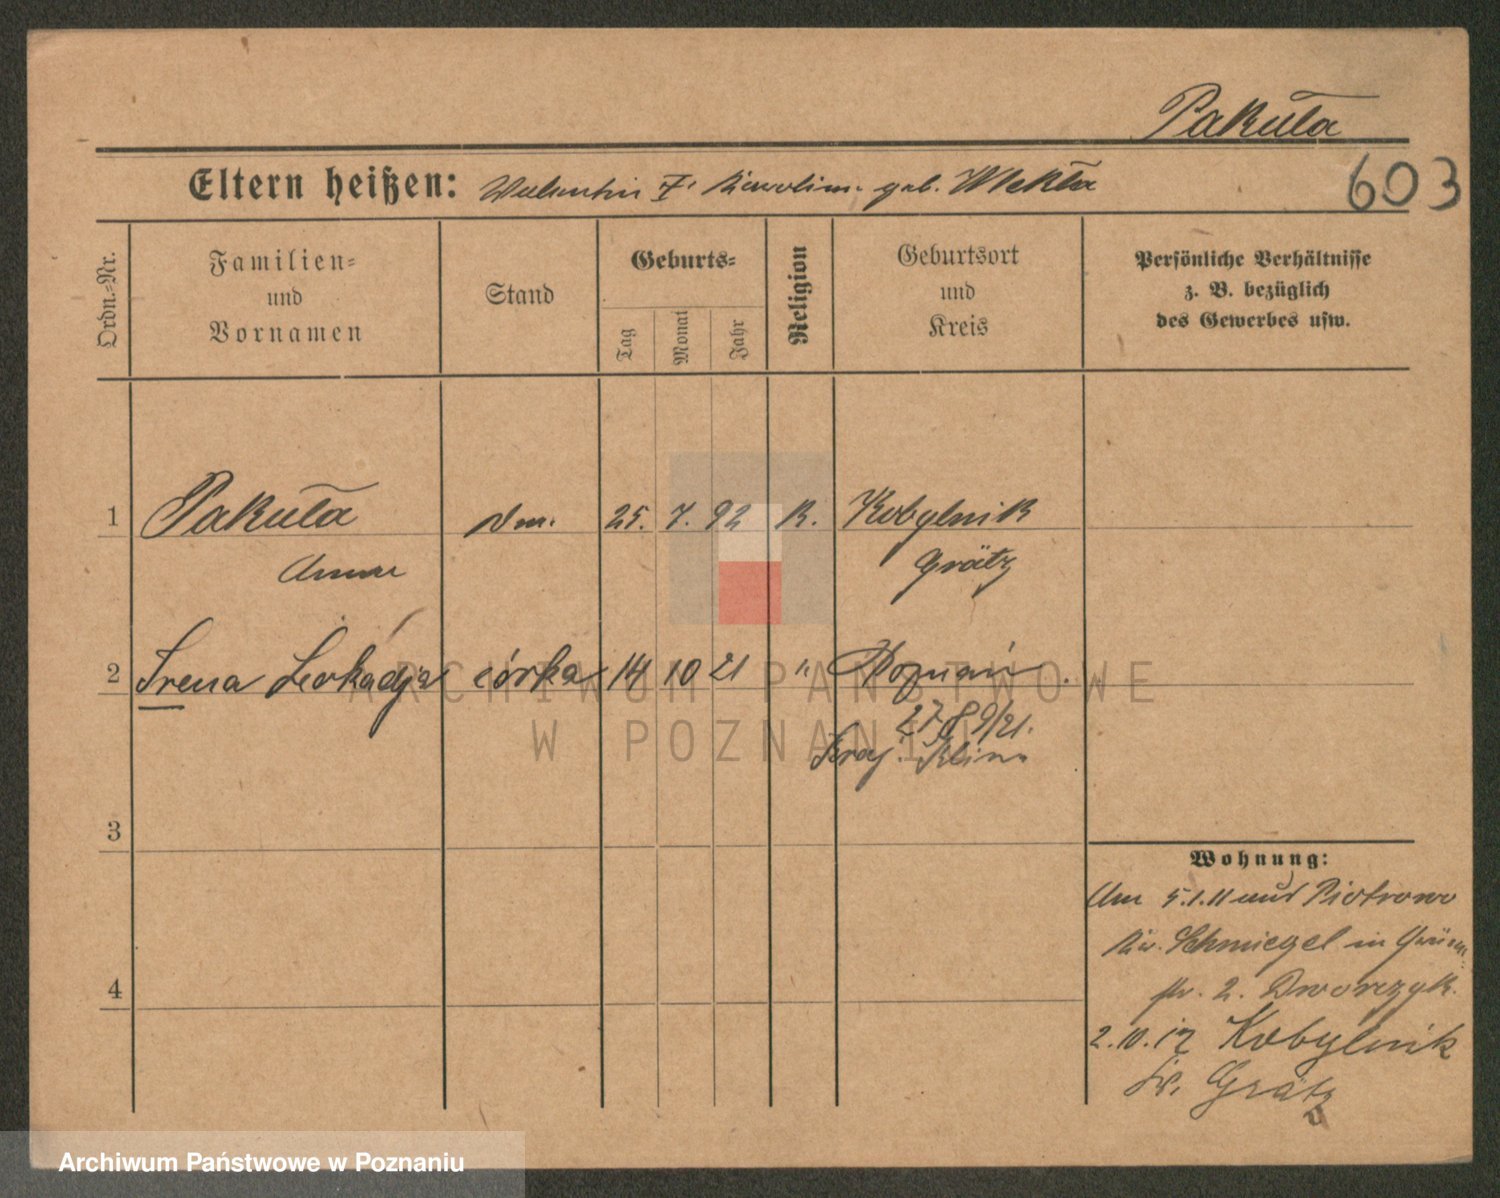 Pakuła
603
Eltern heißen: Valentin Karolina geb. Wlekła
Ordn.-Nr.
Familien- und Vornamen
Stand
Geburts-
Tag
Monat
Jahr
Religion
Geburtsort und Kreis
Persönliche Verhältnisse
z. B. bezüglich
des Gewerbes usw.
1 Pakuła 25. 7. 92 K. Kobylnik
Anna Grätz
2 Irena Leokadja córka 14 10 21 " Poznań.
Kraj. Klin.
3
4
Wohnung:
Am 5.1.11 aus Piotrowo
Kr. Schmiegel in
str. 2. Dworczyk.
2.10.12 Kobylnik
Kr. Grätz
ARCHIWUM PAŃSTWOWE
W POZNANIU
Archiwum Państwowe w Poznaniu